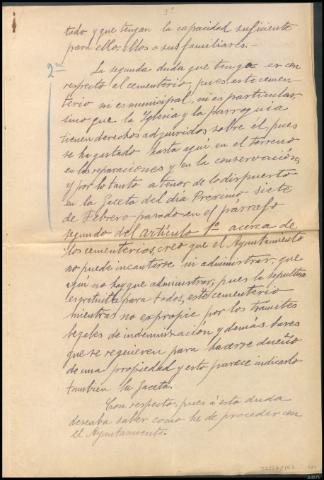 3º
tado y que tengan la capacidad suficiente
para ellos, ellos o sus familiares.—
2ª
La segunda duda que tengo es con
respecto al cementerio, pues este cemen-
terio ni es municipal, ni es particular,
sino que la Iglesia y la parroquia
tienen derechos adquiridos sobre él, pues
se ha gastado hasta aqui en el terreno
en las reparaciones y en la conservacion,
y por lo tanto a tenor de lo dispuesto
en la Gaceta del dia Proximo siete
de Febrero pasado en el parrafo
segundo del articulo 1º acerca de
los cementerios, creo que el Ayuntamiento
no puede incautarse ni administrar, que
aqui no hay que administrar, pues la sepultura
es gratuita para todos, este cementerio
mientras no expropie por los tramites
legales de indemnizacion y demás
que se requieren para hacerse dueño
de una propiedad y esto parece indicarlo
tambien la Gaceta.
Con respecto, pues a esta duda
deseaba saber como he de proceder con
el Ayuntamiento.